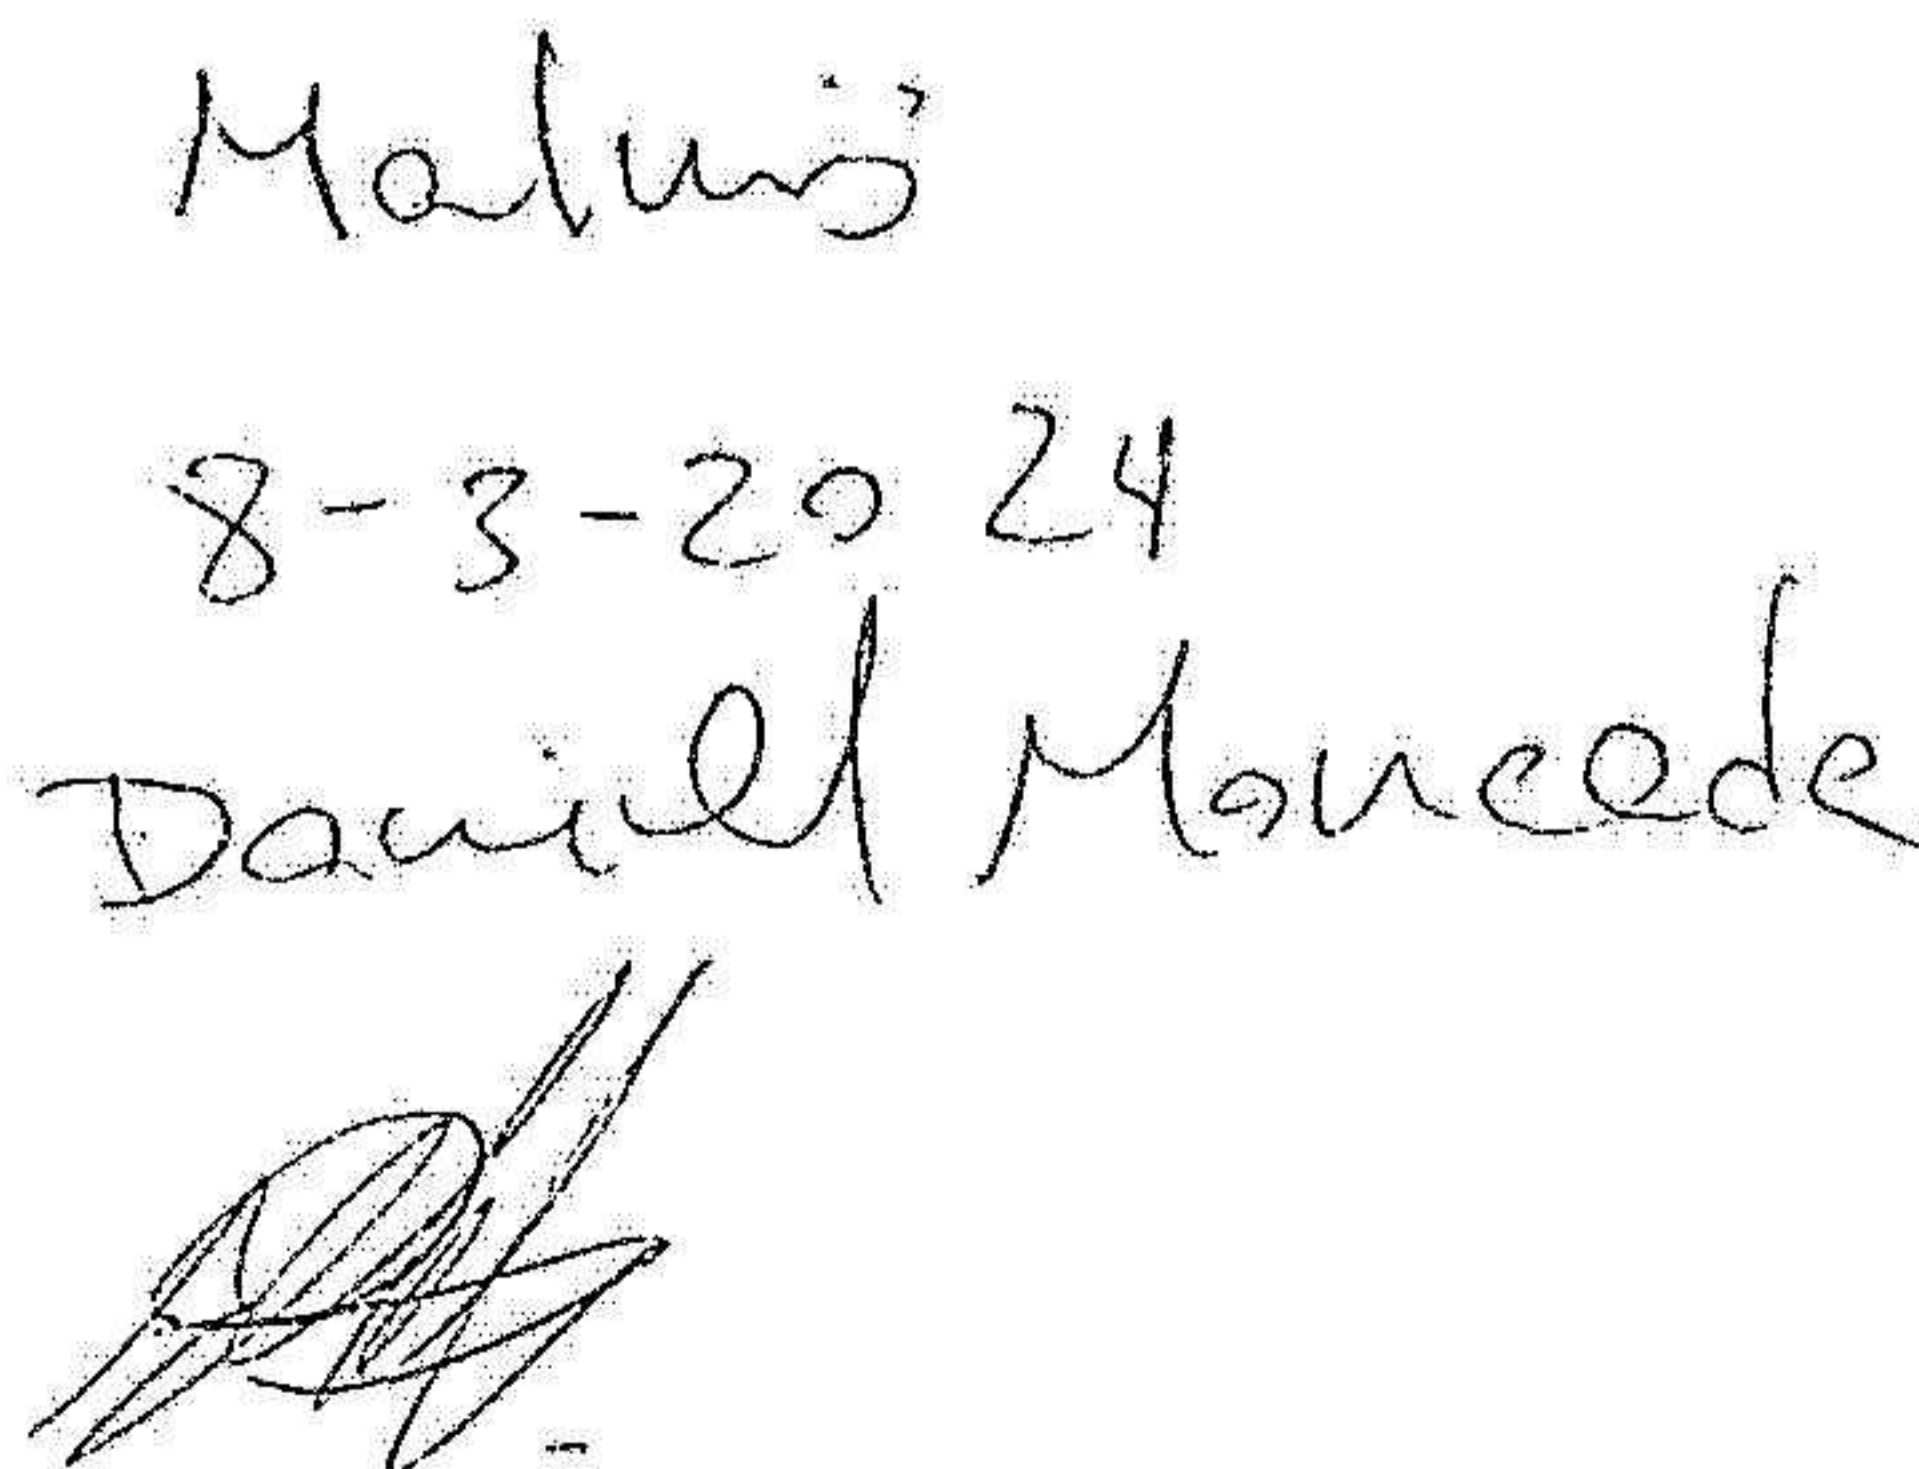 Malmö
8-3-2024
Daniel Moncada